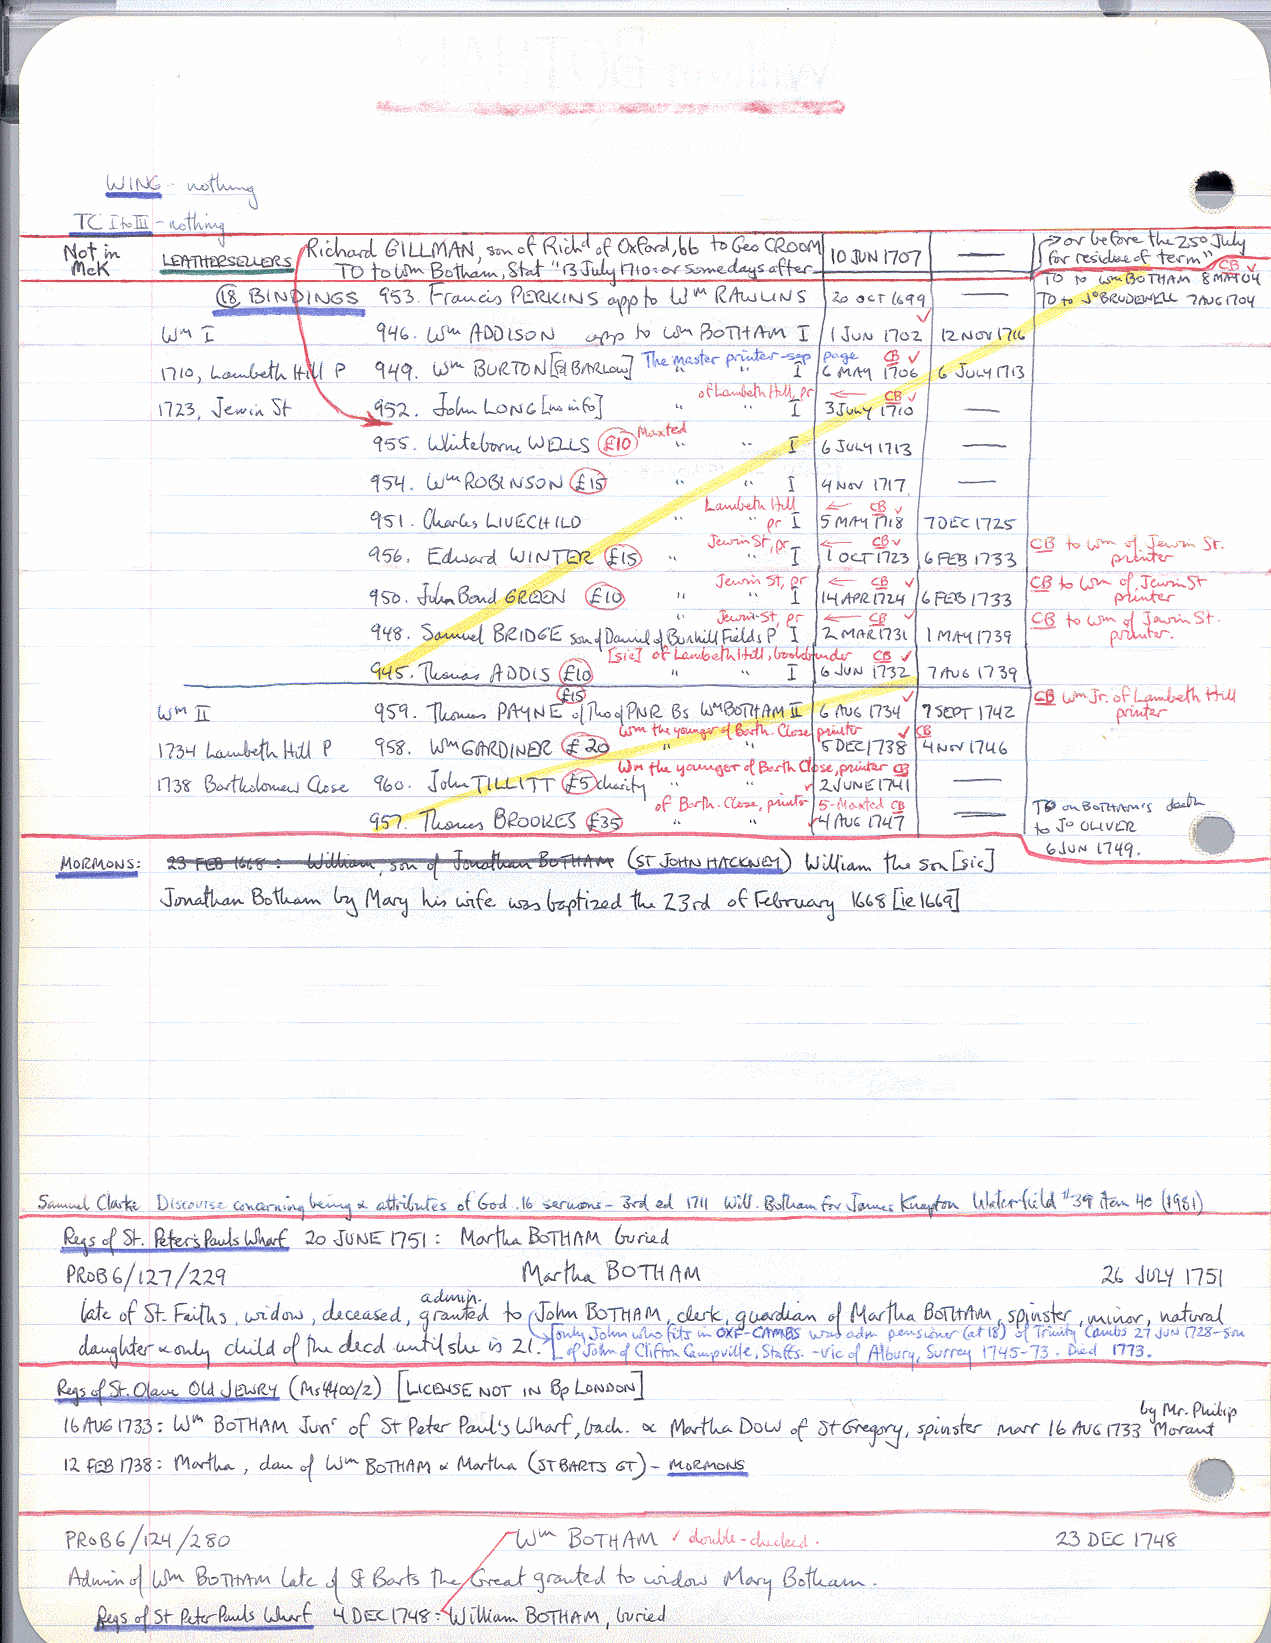 WING - nothing
TC I to III - nothing
Not in McK
LEATHERSELLERS
Richard GILLMAN, son of Richd of Oxford, bb to Geo CROOM 10 JUN 1707 —
TO to Wm Botham, Stat "13 July 1710: or some days after
→ or before the 25o July
for residue of term"
CB ✓
TO to Wm BOTHAM 8 MAY 04
(18) BINDINGS 953. Francis PERKINS app to Wm RAWLINS 20 OCT 1699 — TO to Jo BRUDENELL 7 AUG 1704
Wm I 946. Wm ADDISON app to Wm BOTHAM I 1 JUN 1702 ✓ 12 NOV 1716
The master printer - sep page CB ✓
1710, Lambeth Hill P 949. Wm BURTON [of BARLOW] " " I 6 MAY 1706 6 JULY 1713
of Lambeth Hill, pr ← CB ✓
1723, Jewin St 952. John LONG [no info] " " I 3 JULY 1710 —
955. Whiteborne WELLS £10 Maxted " " I 6 JULY 1713 —
954. Wm ROBINSON £15 " " I 4 NOV 1717 —
Lambeth Hill ← CB ✓
951. Charles LIVECHILD " " pr I 5 MAY 1718 7 DEC 1725
Jewin St, pr ← CB ✓
956. Edward WINTER £15 " " I 1 OCT 1723 6 FEB 1733 CB to Wm of Jewin St. printer
Jewin St, pr ← CB ✓
950. John Bond GREEN £10 " " I 14 APR 1724 6 FEB 1733 CB to Wm of Jewin St printer
" Jewin St, pr ← CB ✓
948. Samuel BRIDGE son of Daniel of Bunhill Fields P I 2 MAR 1731 1 MAY 1739 CB to Wm of Jewin St. printer.
[sic] of Lambeth Hill, bookbinder CB ✓
945. Thomas ADDIS £10 " " I 6 JUN 1732 7 AUG 1739
£15
Wm II 959. Thomas PAYNE of Tho of PNR Bs Wm BOTHAM II 6 AUG 1734 ✓ 7 SEPT 1742 CB Wm Jr. of Lambeth Hill printer
Wm the younger of Barth. Close printer ✓ CB
1734 Lambeth Hill P 958. Wm GARDINER £20 " " 5 DEC 1738 4 NOV 1746
Wm the younger of Barth Close, printer CB
1738 Bartholomew Close 960. John TILLITT £5 charity " " ✓ 2 JUNE 1741 —
of Barth. Close, printer 5-Maxted CB
957. Thomas BROOKES £35 " " ✓ 4 AUG 1747 — TO on BOTHAM's death
to Jo OLIVER
6 JUN 1749.
MORMONS: 23 FEB 1668: William, son of Jonathan BOTHAM (ST JOHN HACKNEY) William the son [sic]
Jonathan Botham by Mary his wife was baptized the 23rd of February 1668 [ie 1669]
Samuel Clarke Discourse concerning being & attributes of God. 16 sermons - 3rd ed 1711 Will. Botham for James Knapton Waterfield #39 item 40 (1981)
Regs of St. Peter's Pauls Wharf 20 JUNE 1751: Martha BOTHAM buried
PROB 6/127/229 Martha BOTHAM 26 JULY 1751
admin.
late of St. Faiths, widow, deceased, granted to John BOTHAM, clerk, guardian of Martha BOTHAM, spinster, minor, natural
→[only John who fits in OXF-CAMBS was adm pensioner (at 18) of Trinity Cambs 27 JUN 1728 - son
daughter & only child of the decd until she is 21. of John of Clifton Campville, Staffs. - Vic of Albury, Surrey 1745-73. Died 1773.
Regs of St. Olave OLD JEWRY (Ms 4400/2) [LICENSE NOT IN Bp LONDON]
by Mr. Philip
16 AUG 1733: Wm BOTHAM Junr of St Peter Paul's Wharf, bach. & Martha DOW of St Gregory, spinster marr 16 AUG 1733 Morant
12 FEB 1738: Martha, dau of Wm BOTHAM & Martha (ST BARTS GT) - MORMONS
PROB 6/124/280 Wm BOTHAM ✓ double-checked. 23 DEC 1748
Admin of Wm BOTHAM late of St Barts the Great granted to widow Mary Botham.
Regs of St Peter Pauls Wharf 4 DEC 1748: William BOTHAM, buried